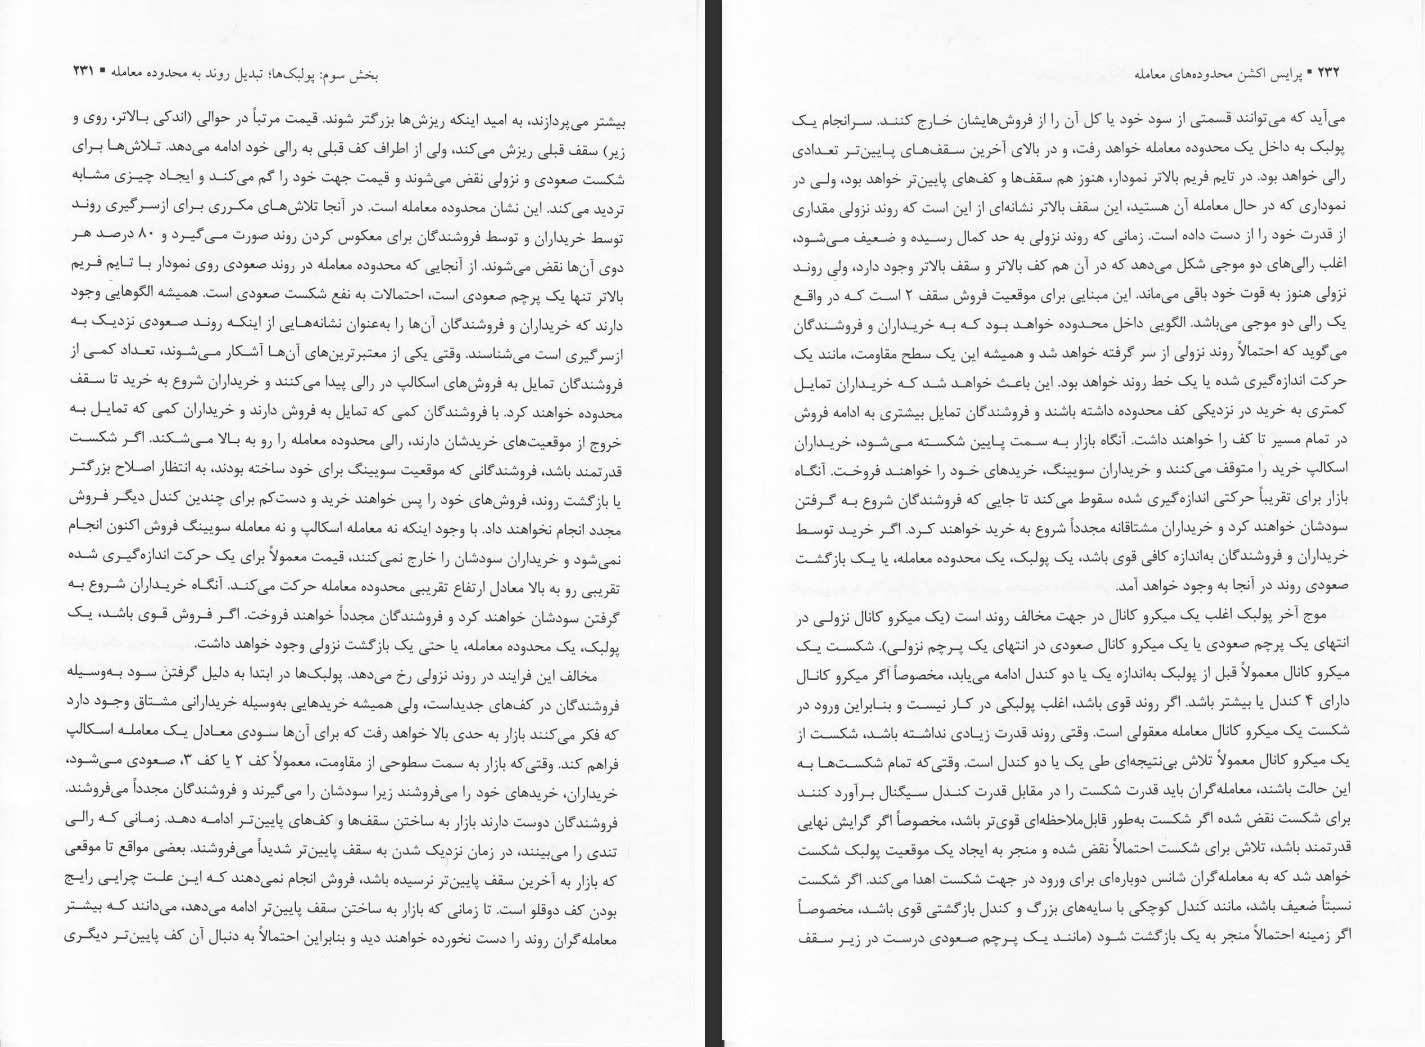 ۲۳۲ ▪ پرایس اکشن محدوده‌های معامله
می‌آید که می‌توانند قسمتی از سود خود یا کل آن را از فروش‌هایشان خارج کنند. سرانجام یک
پولبک به داخل یک محدوده معامله خواهد رفت، و در بالای آخرین سقف‌های پایین‌تر تعدادی
رالی خواهد بود. در تایم فریم بالاتر نمودار، هنوز هم سقف‌ها و کف‌های پایین‌تر خواهد بود، ولی در
نموداری که در حال معامله آن هستید، این سقف بالاتر نشانه‌ای از این است که روند نزولی مقداری
از قدرت خود را از دست داده است. زمانی که روند نزولی به حد کمال رسیده و ضعیف می‌شود،
اغلب رالی‌های دو موجی شکل می‌دهد که در آن هم کف بالاتر و سقف بالاتر وجود دارد، ولی روند
نزولی هنوز به قوت خود باقی می‌ماند. این مبنایی برای موقعیت فروش سقف ۲ است که در واقع
یک رالی دو موجی می‌باشد. الگویی داخل محدوده خواهد بود که به خریداران و فروشندگان
می‌گوید که احتمالاً روند نزولی از سر گرفته خواهد شد و همیشه این یک سطح مقاومت، مانند یک
حرکت اندازه‌گیری شده یا یک خط روند خواهد بود. این باعث خواهد شد که خریداران تمایل
کمتری به خرید در نزدیکی کف محدوده داشته باشند و فروشندگان تمایل بیشتری به ادامه فروش
در تمام مسیر تا کف را خواهند داشت. آنگاه بازار به سمت پایین شکسته می‌شود، خریداران
اسکالپ خرید را متوقف می‌کنند و خریداران سویینگ، خریدهای خود را خواهند فروخت. آنگاه
بازار برای تقریباً حرکتی اندازه‌گیری شده سقوط می‌کند تا جایی که فروشندگان شروع به گرفتن
سودشان خواهند کرد و خریداران مشتاقانه مجدداً شروع به خرید خواهند کرد. اگر خرید توسط
خریداران و فروشندگان به‌اندازه کافی قوی باشد، یک پولبک، یک محدوده معامله، یا یک بازگشت
صعودی روند در آنجا به وجود خواهد آمد.
موج آخر پولبک اغلب یک میکرو کانال در جهت مخالف روند است (یک میکرو کانال نزولی در
انتهای یک پرچم صعودی یا یک میکرو کانال صعودی در انتهای یک پرچم نزولی). شکست یک
میکرو کانال معمولاً قبل از پولبک به‌اندازه یک یا دو کندل ادامه می‌یابد، مخصوصاً اگر میکرو کانال
دارای ۴ کندل یا بیشتر باشد. اگر روند قوی باشد، اغلب پولبکی در کار نیست و بنابراین ورود در
شکست یک میکرو کانال معامله معقولی است. وقتی روند قدرت زیادی نداشته باشد، شکست از
یک میکرو کانال معمولاً تلاش بی‌نتیجه‌ای طی یک یا دو کندل است. وقتی‌که تمام شکست‌ها به
این حالت باشند، معامله‌گران باید قدرت شکست را در مقابل قدرت کندل سیگنال برآورد کنند
برای شکست نقض شده اگر شکست به‌طور قابل‌ملاحظه‌ای قوی‌تر باشد، مخصوصاً اگر گرایش نهایی
قدرتمند باشد، تلاش برای شکست احتمالاً نقض شده و منجر به ایجاد یک موقعیت پولبک شکست
خواهد شد که به معامله‌گران شانس دوباره‌ای برای ورود در جهت شکست اهدا می‌کند. اگر شکست
نسبتاً ضعیف باشد، مانند کندل کوچکی با سایه‌های بزرگ و کندل بازگشتی قوی باشد، مخصوصاً
اگر زمینه احتمالاً منجر به یک بازگشت شود (مانند یک پرچم صعودی درست در زیر سقف
بخش سوم: پولبک‌ها؛ تبدیل روند به محدوده معامله ▪ ۲۳۱
بیشتر می‌پردازند، به امید اینکه ریزش‌ها بزرگتر شوند. قیمت مرتباً در حوالی (اندکی بالاتر، روی و
زیر) سقف قبلی ریزش می‌کند، ولی از اطراف کف قبلی به رالی خود ادامه می‌دهد. تلاش‌ها برای
شکست صعودی و نزولی نقض می‌شوند و قیمت جهت خود را گم می‌کند و ایجاد چیزی مشابه
تردید می‌کند. این نشان محدوده معامله است. در آنجا تلاش‌های مکرری برای ازسرگیری روند
توسط خریداران و توسط فروشندگان برای معکوس کردن روند صورت می‌گیرد و ۸۰ درصد هر
دوی آن‌ها نقض می‌شوند. از آنجایی که محدوده معامله در روند صعودی روی نمودار با تایم فریم
بالاتر تنها یک پرچم صعودی است، احتمالات به نفع شکست صعودی است. همیشه الگوهایی وجود
دارند که خریداران و فروشندگان آن‌ها را به‌عنوان نشانه‌هایی از اینکه روند صعودی نزدیک به
ازسرگیری است می‌شناسند. وقتی یکی از معتبرترین‌های آن‌ها آشکار می‌شوند، تعداد کمی از
فروشندگان تمایل به فروش‌های اسکالپ در رالی پیدا می‌کنند و خریداران شروع به خرید تا سقف
محدوده خواهند کرد. با فروشندگان کمی که تمایل به فروش دارند و خریداران کمی که تمایل به
خروج از موقعیت‌های خریدشان دارند، رالی محدوده معامله را رو به بالا می‌شکند. اگر شکست
قدرتمند باشد، فروشندگانی که موقعیت سویینگ برای خود ساخته بودند، به انتظار اصلاح بزرگتر
یا بازگشت روند، فروش‌های خود را پس خواهند خرید و دست‌کم برای چندین کندل دیگر فروش
مجدد انجام نخواهند داد. با وجود اینکه نه معامله اسکالپ و نه معامله سویینگ فروش اکنون انجام
نمی‌شود و خریداران سودشان را خارج نمی‌کنند، قیمت معمولاً برای یک حرکت اندازه‌گیری شده
تقریبی رو به بالا معادل ارتفاع تقریبی محدوده معامله حرکت می‌کند. آنگاه خریداران شروع به
گرفتن سودشان خواهند کرد و فروشندگان مجدداً خواهند فروخت. اگر فروش قوی باشد، یک
پولبک، یک محدوده معامله، یا حتی یک بازگشت نزولی وجود خواهد داشت.
مخالف این فرایند در روند نزولی رخ می‌دهد. پولبک‌ها در ابتدا به دلیل گرفتن سود به‌وسیله
فروشندگان در کف‌های جدیداست، ولی همیشه خریدهایی به‌وسیله خریدارانی مشتاق وجود دارد
که فکر می‌کنند بازار به حدی بالا خواهد رفت که برای آن‌ها سودی معادل یک معامله اسکالپ
فراهم کند. وقتی‌که بازار به سمت سطوحی از مقاومت، معمولاً کف ۲ یا کف ۳، صعودی می‌شود،
خریداران، خریدهای خود را می‌فروشند زیرا سودشان را می‌گیرند و فروشندگان مجدداً می‌فروشند.
فروشندگان دوست دارند بازار به ساختن سقف‌ها و کف‌های پایین‌تر ادامه دهد. زمانی که رالی
تندی را می‌بینند، در زمان نزدیک شدن به سقف پایین‌تر شدیداً می‌فروشند. بعضی مواقع تا موقعی
که بازار به آخرین سقف پایین‌تر نرسیده باشد، فروش انجام نمی‌دهند که این علت چرایی رایج
بودن کف دوقلو است. تا زمانی که بازار به ساختن سقف پایین‌تر ادامه می‌دهد، می‌دانند که بیشتر
معامله‌گران روند را دست نخورده خواهند دید و بنابراین احتمالاً به دنبال آن کف پایین‌تر دیگری